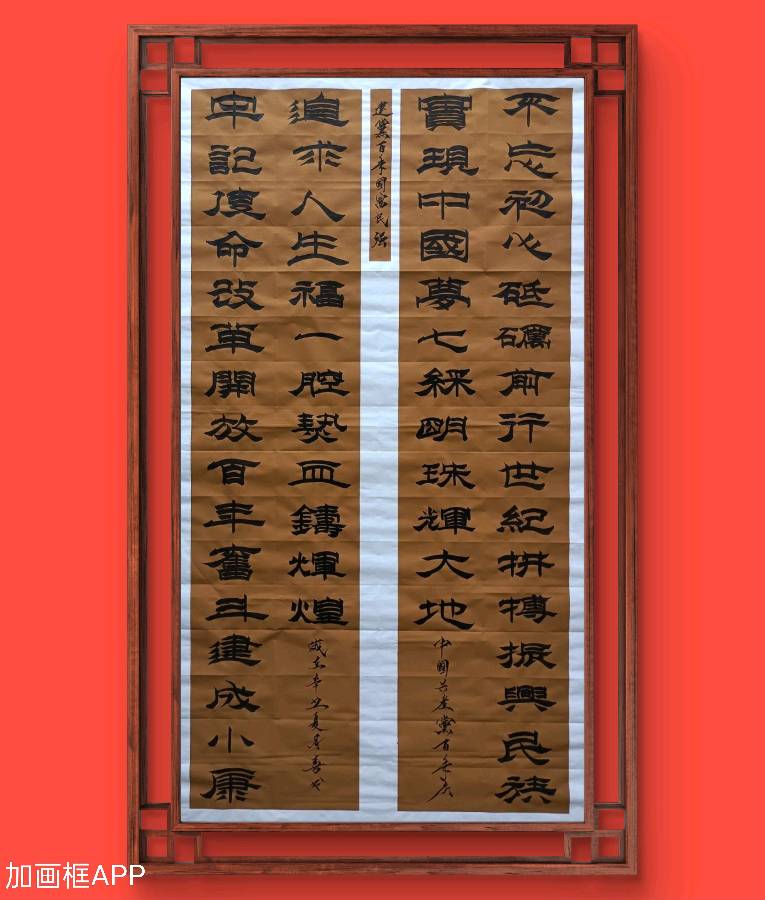 不忘初心砥礪前行世紀拼搏振興民族
實現中國夢七綵明珠輝大地
中國共產黨百年慶
建黨百年國富民强
牢記使命改革開放百年奮斗建成小康
追求人生福一腔熱血鑄輝煌
歲在辛丑夏月喜书
加画框APP